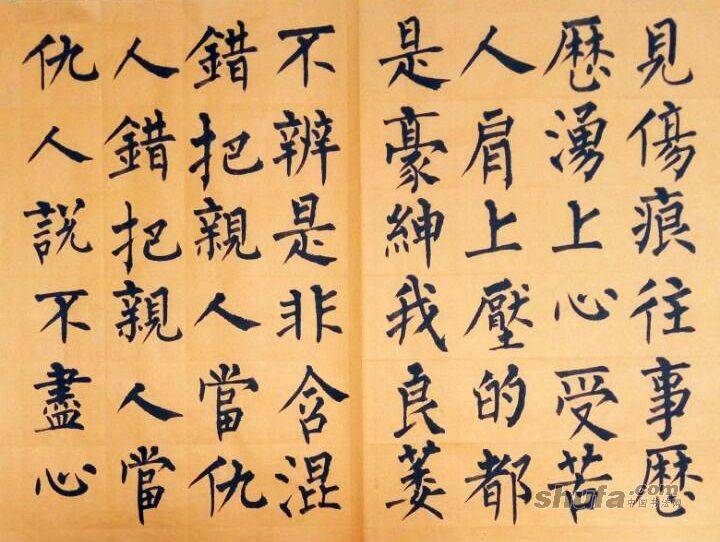 見傷痕往事歷
歷湧上心受苦
人肩上壓的都
是豪紳我良莠
不辨是非含混
錯把親人當仇
人錯把親人當
仇人說不盡心
shufa.com
中国书法网